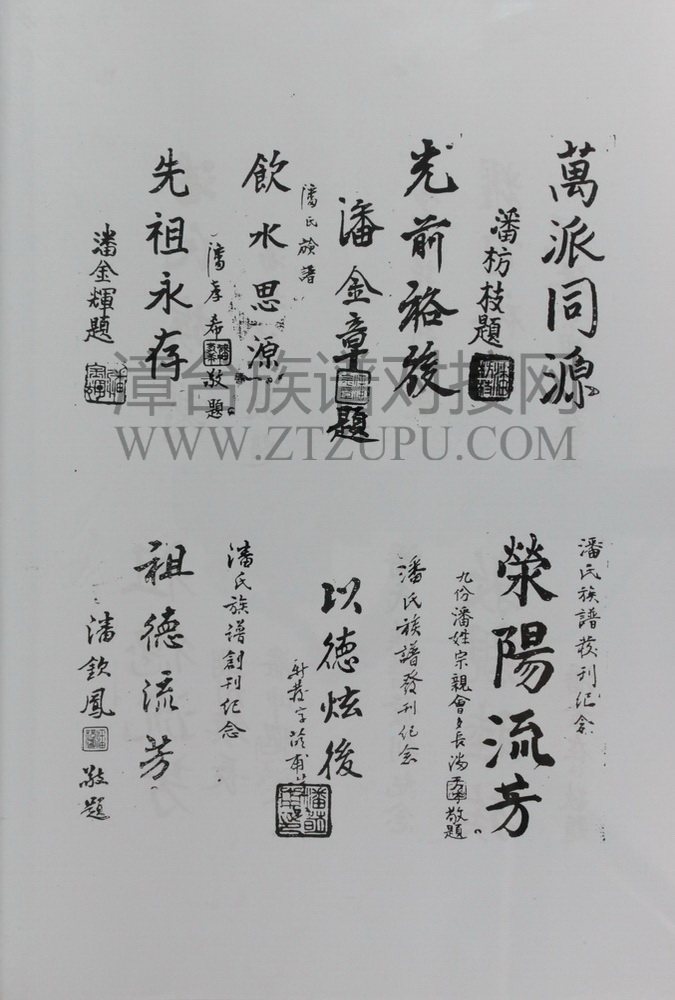 萬派同源
潘枋枝題
光前裕後
潘金章題
潘氏族譜
飲水思源
潘孝希敬題
先祖永存
潘金輝題
漳台族谱对接网
WWW.ZTZUPU.COM
潘氏族譜發刊纪念
滎陽流芳
九份潘姓宗親會會長潘敬題
潘氏族譜發刊纪念
以德炫後
潘氏族譜創刊纪念
祖德流芳
潘欽鳳敬題